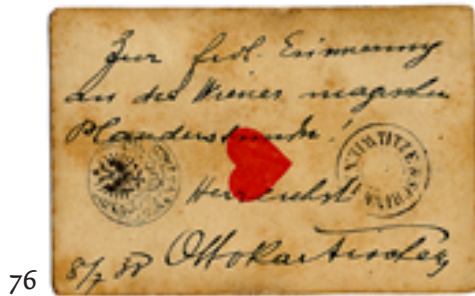 Zur frdl. Erinnerung
an die Wiener magische
Plauderstunde!
Herzlichst
8/7 38 Ottokar Fischer
76